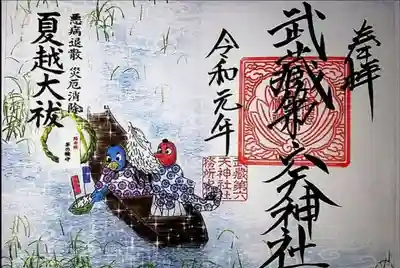 奉拝
武蔵第六天神社
令和元年
武蔵第六
天神社社
務所印
悪病退散 災厄消除
夏越大祓